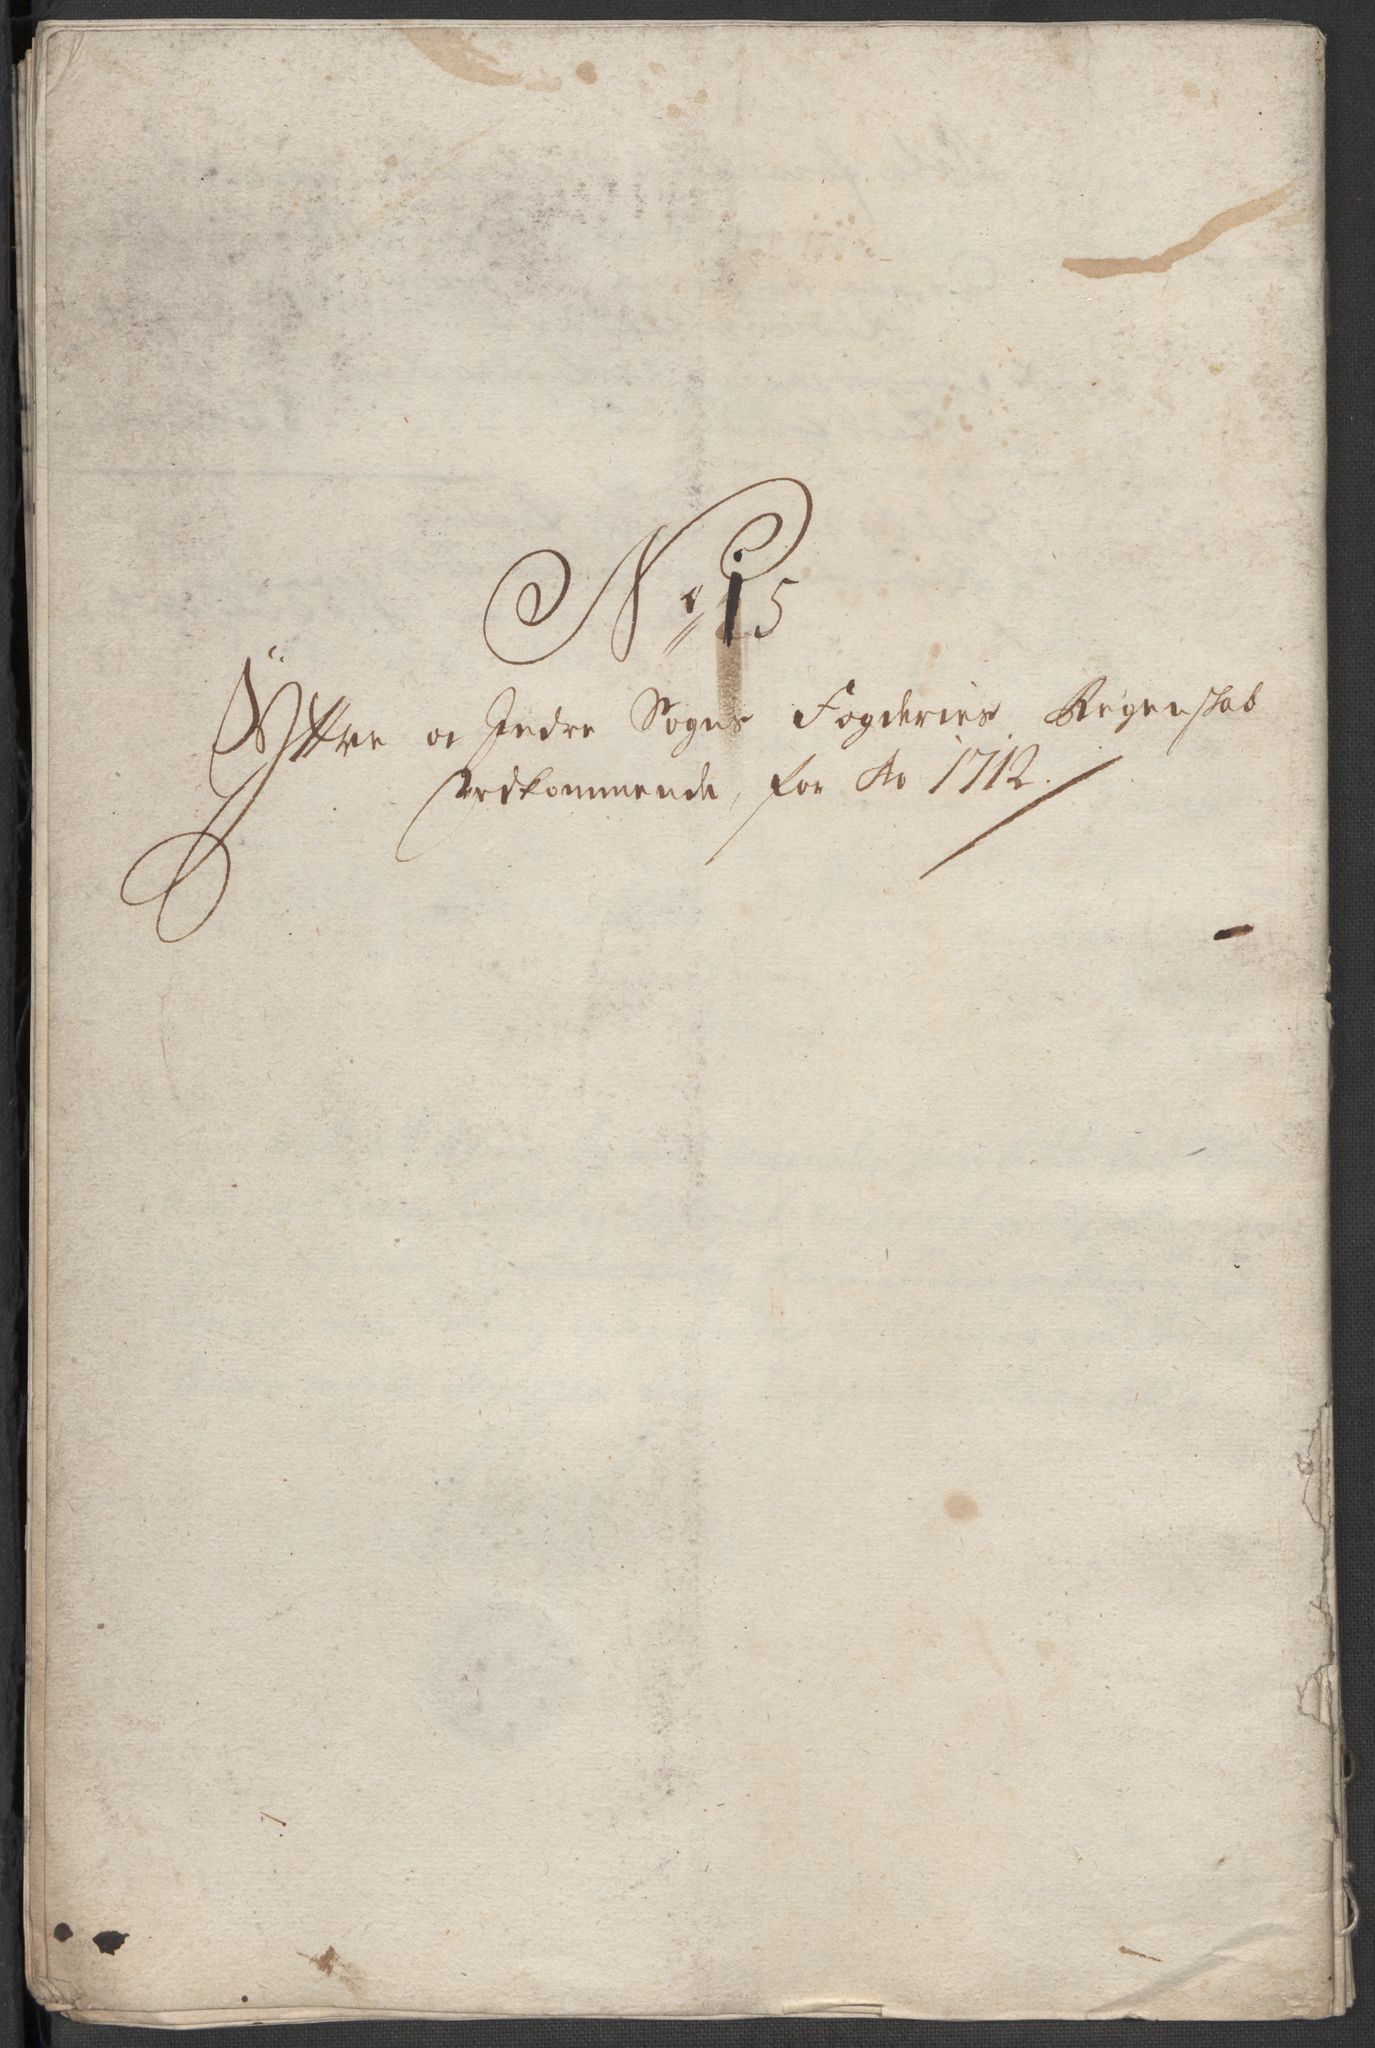 No 15
Ÿttre oc Indre Sogns Fogderies Regenskab
Vedkommende, for Ao 1712.